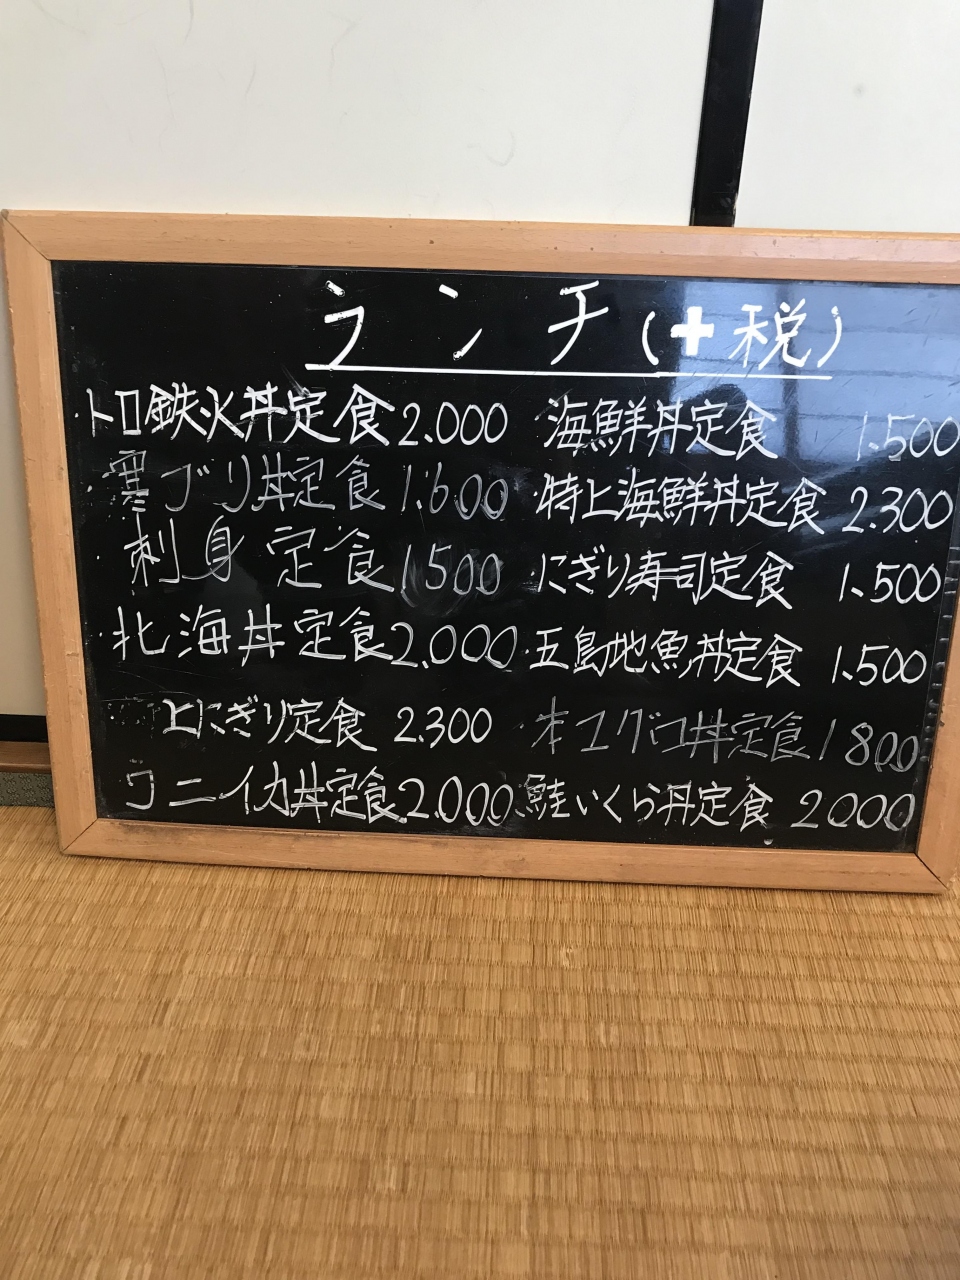 ランチ(+税)
・トロ鉄火丼定食 2.000
・寒ブリ丼定食 1.600
・刺身定食 1500
・北海丼定食 2.000
上にぎり定食 2.300
ウニイカ丼定食 2.000
海鮮丼定食 1.500
・特上海鮮丼定食 2.300
・にぎり寿司定食 1.500
・五島地魚丼定食 1.500
・本マグロ丼定食 1800
・鮭いくら丼定食 2000